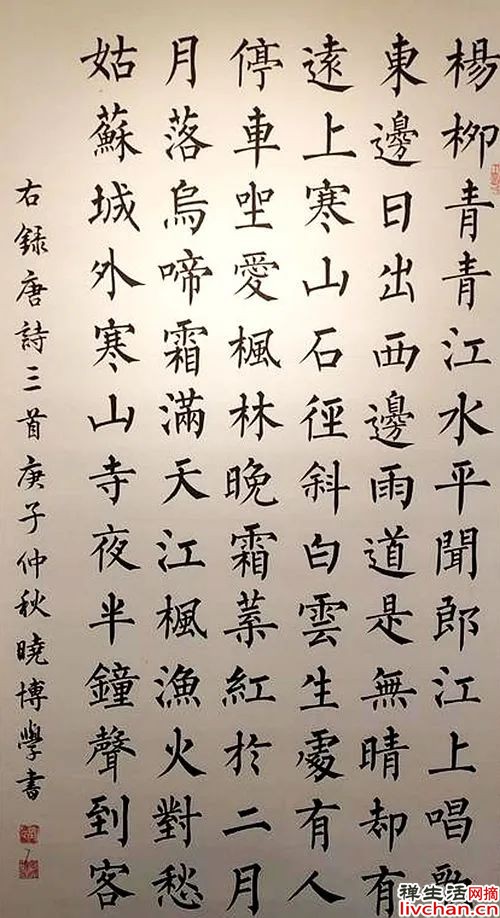 楊柳青青江水平聞郎江上唱歌
東邊日出西邊雨道是無晴却有
遠上寒山石徑斜白雲生處有人
停車坐愛楓林晚霜葉紅於二月
月落烏啼霜滿天江楓漁火對愁
姑蘇城外寒山寺夜半鐘聲到客
右錄唐詩三首庚子仲秋曉博學書
禅生活网摘
livchan.cn